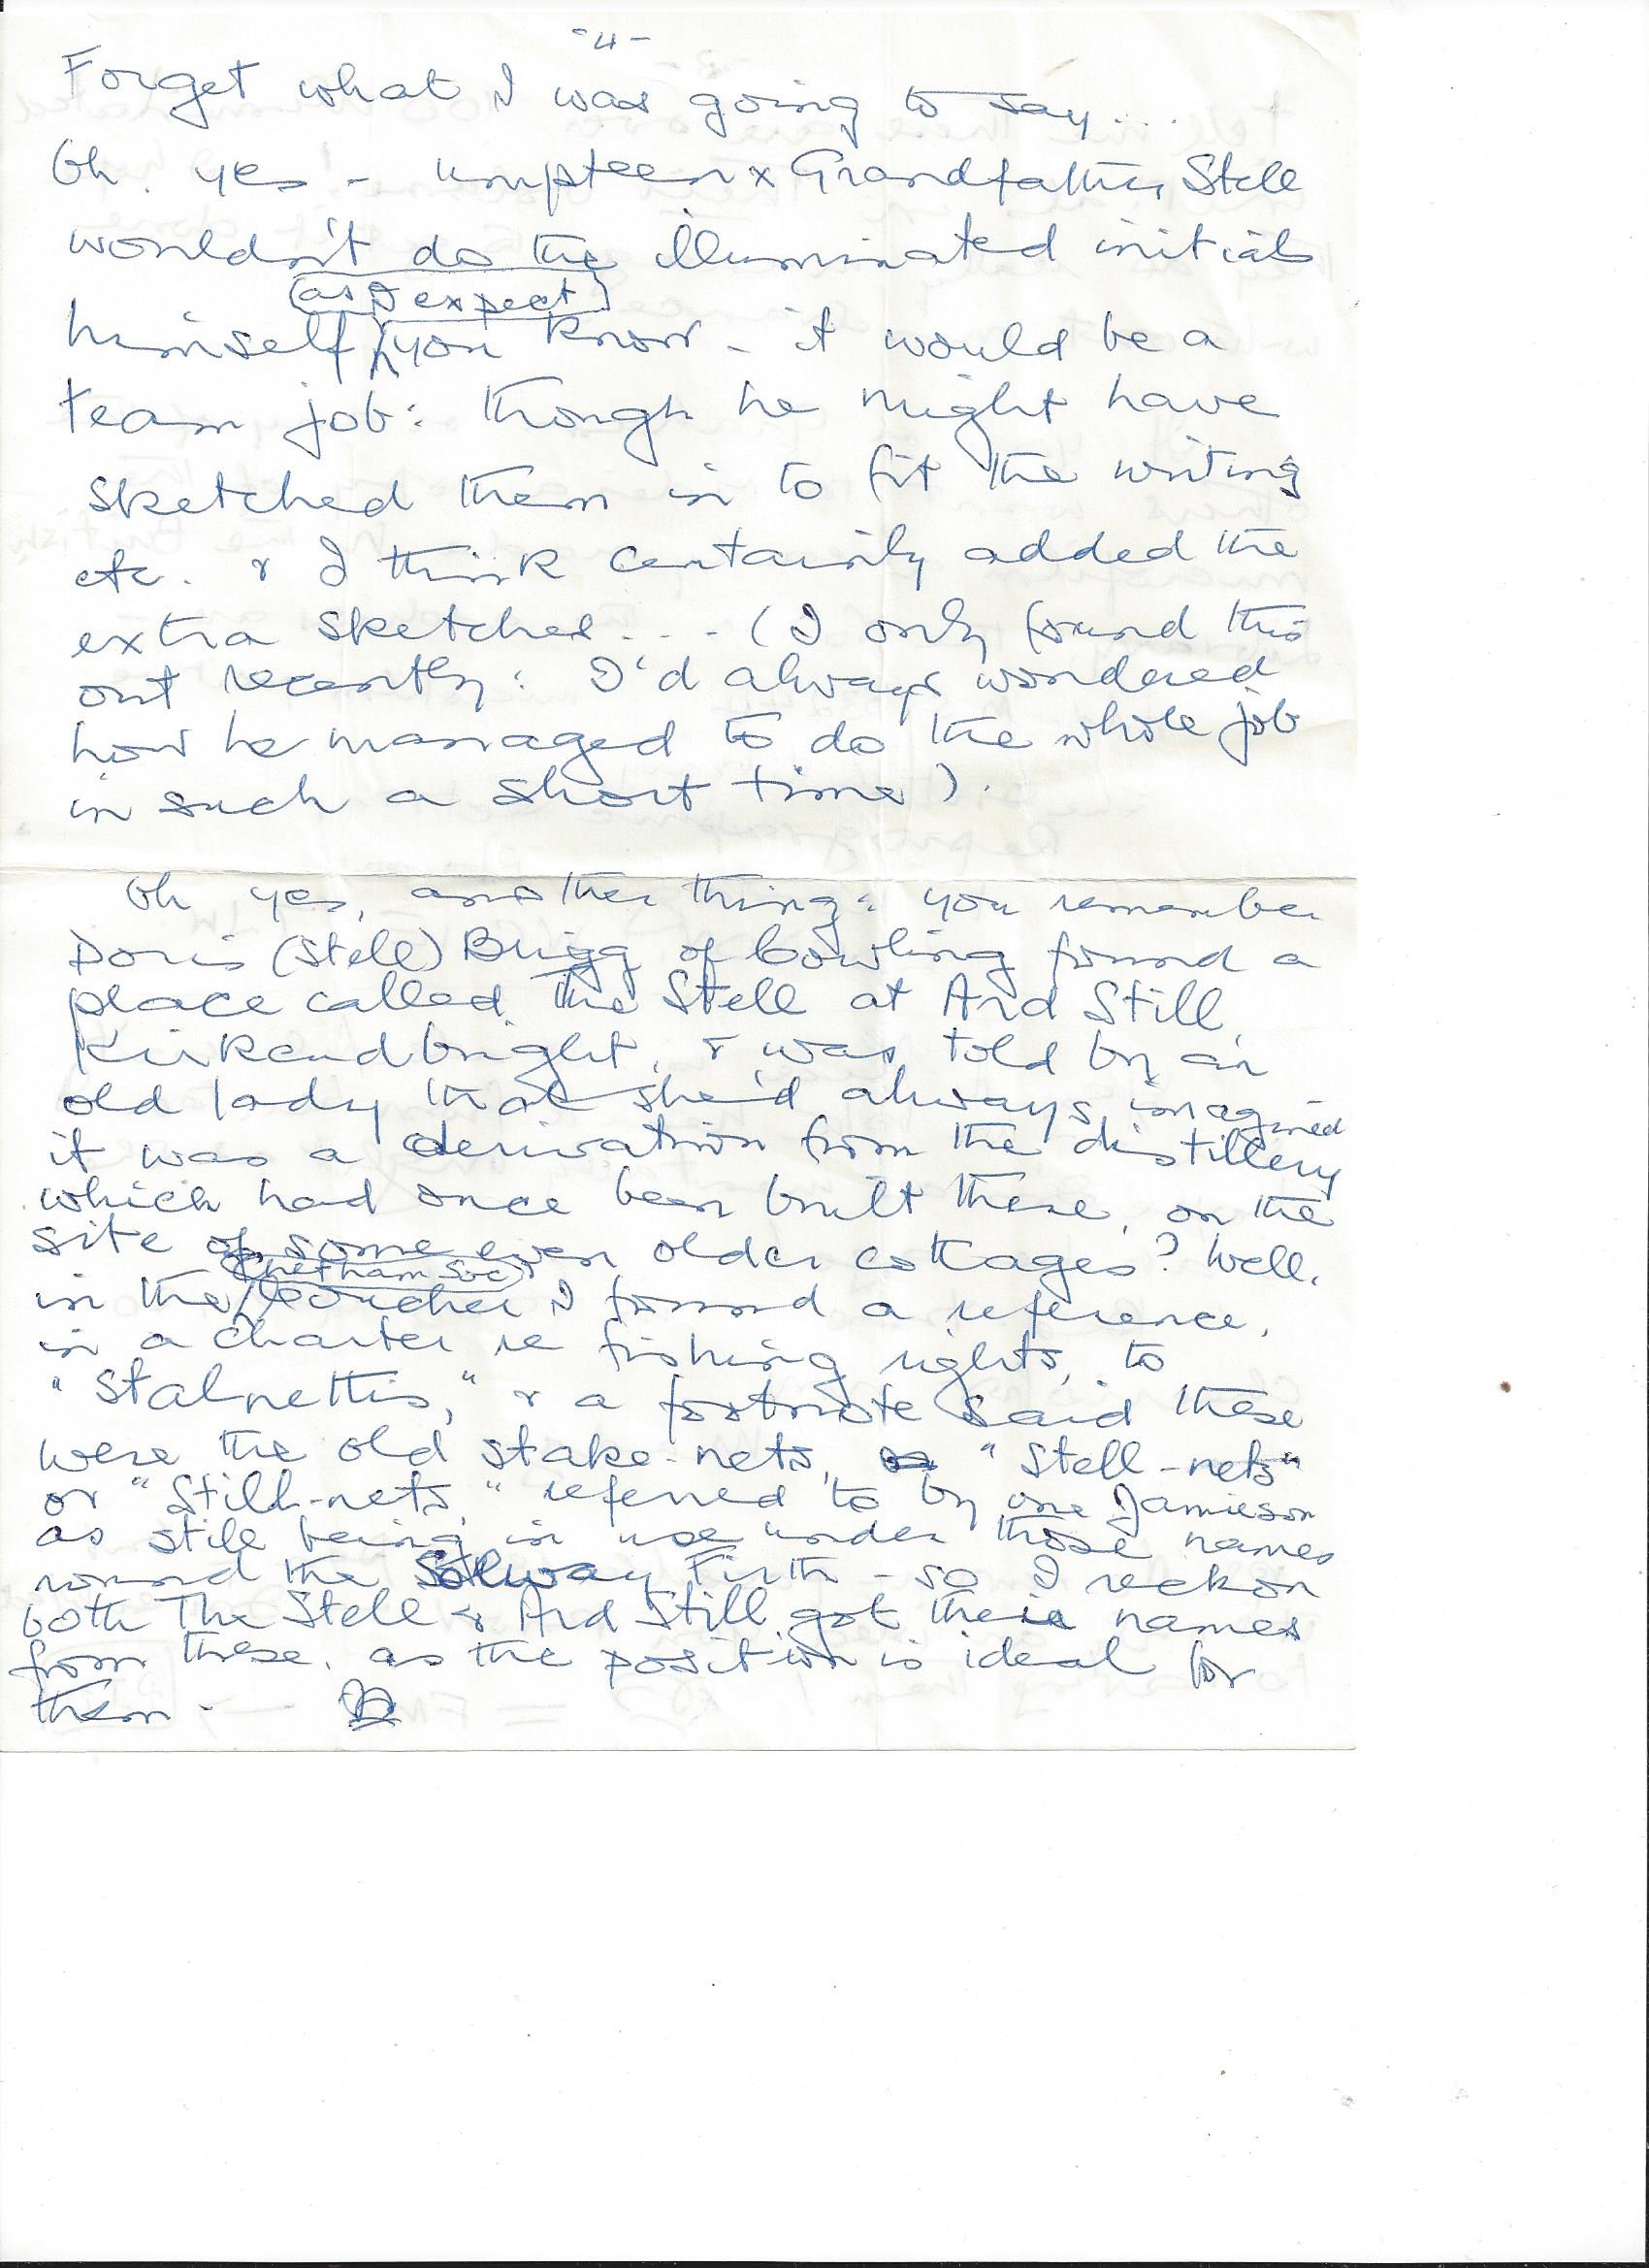 -4-
Forget what I was going to say...
Oh. yes - umpteen x Grandfather Stell
wouldn't do the illuminated initials
(as I expect)
himself, you know - it would be a
team job: though he might have
sketched them in to fit the writing
etc. & I think certainly added the
extra sketches... (I only found this
out recently: I'd always wondered
how he managed to do the whole job
in such a short time).
Oh yes, another thing: you remember
Doris (Stell) Brigg of Cowling found a
place called The Stell at Ard Still,
Kirkcudbright, & was told by an
old lady that she'd always imagined
it was a derivation from the distillery
which had once been built there, on the
site of some even older cottages? Well,
(Chetham Soc)
in the Coucher I found a reference,
in a charter re fishing rights, to
"Stalnettis," & a footnote said these
were the old stake-nets, "Stell-nets"
or "Still-nets," referred to by one Jamieson
as still being in use under those names
round the Solway Firth - so I reckon
both The Stell & Ard Still got their names
from these, as the position is ideal for
them.